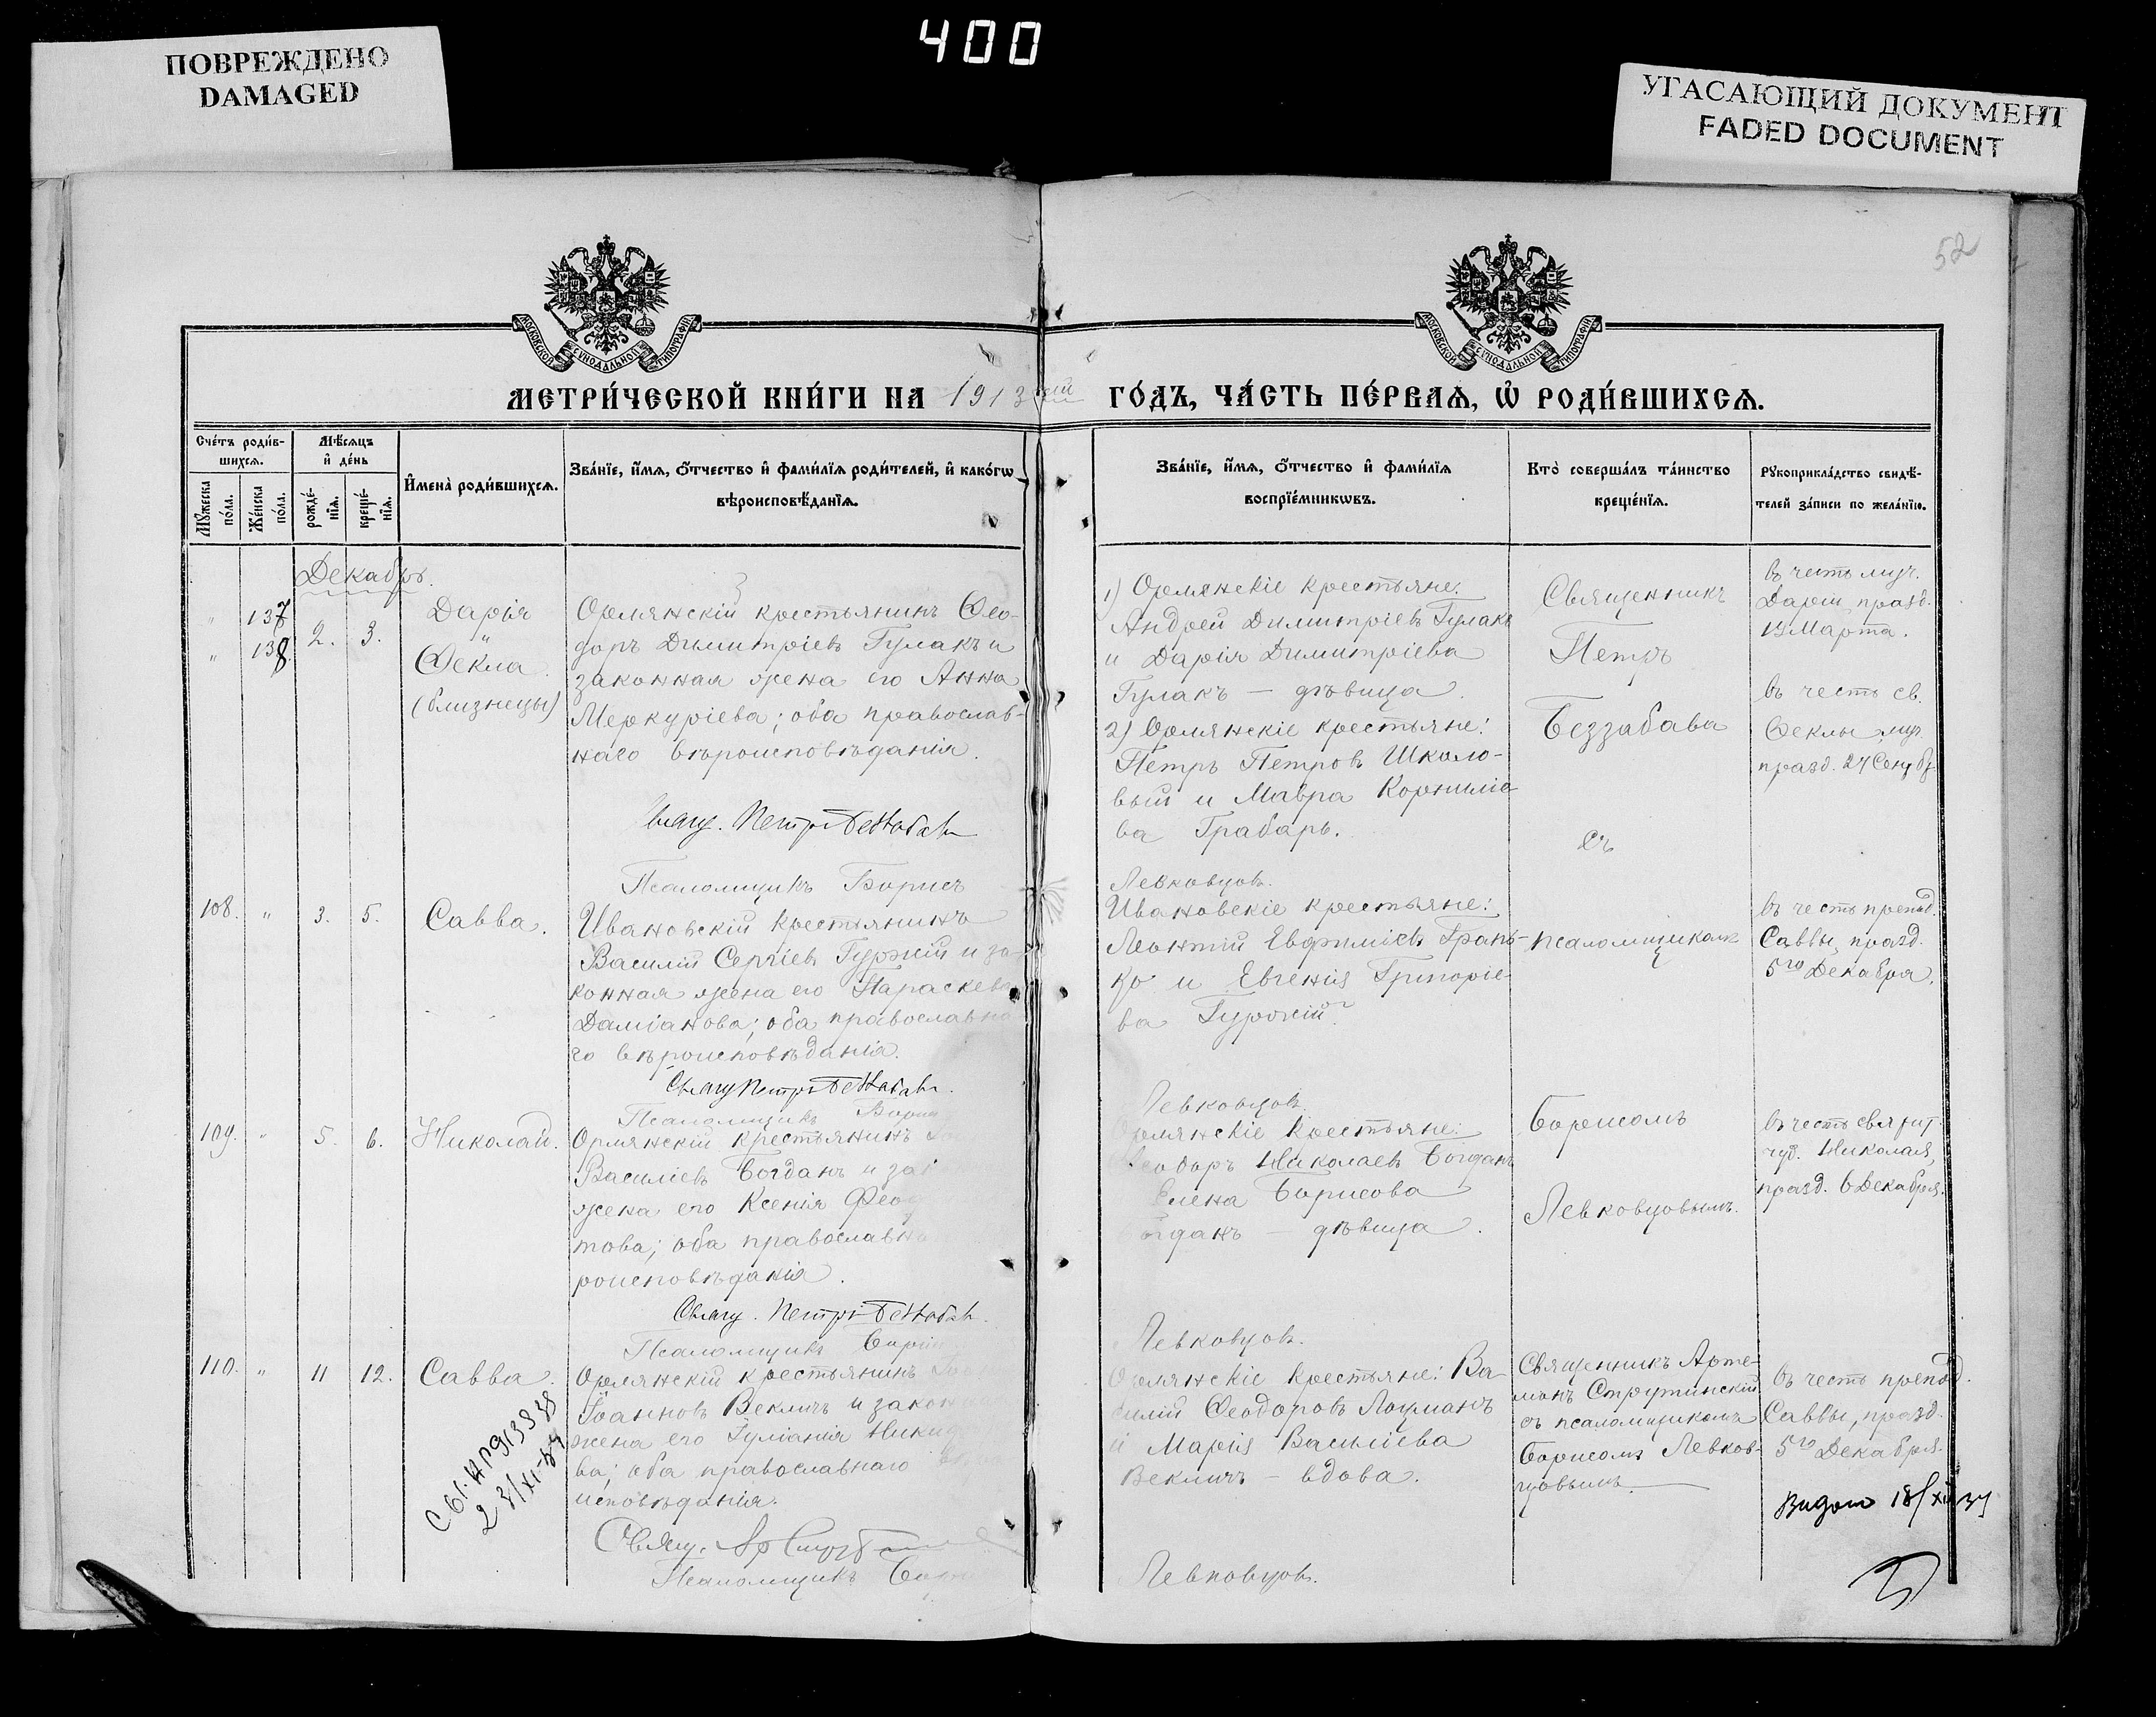 400
ПОВРЕЖДЕНО
DAMAGED
УГАСАЮЩИЙ ДОКУМЕНТ
FADED DOCUMENT
52
МОСКОВСКОЙ СѴНОДАЛЬНОЙ ТИПОГРАФІИ
МОСКОВСКОЙ СѴНОДАЛЬНОЙ ТИПОГРАФІИ
МЕТРИ́ЧЕСКОЙ КНИ́ГИ НА 1913 ый
ГО́ДЪ, ЧА́СТЬ ПЕ́РВАѦ, Ѡ҆ РОДИ́ВШИХСѦ.
Сче́тъ роди́в-
шихсѧ.
Мѣ́сѧцъ
и҆ де́нь
Мꙋ́жеска
по́ла.
Же́нска
по́ла.
рожде́-
нїѧ.
креще́-
нїѧ.
И҆мена̀ роди́вшихсѧ.
Зва́нїе, и҆́мѧ, ѻ҆́тчество и҆ фами́лїѧ роди́телей, и҆ како́гѡ
вѣроисповѣ́данїѧ.
Зва́нїе, и҆́мѧ, ѻ҆́тчество и҆ фами́лїѧ
воспрїе́мникѡвъ.
Кто̀ соверша́лъ та́инство
креще́нїѧ.
Рꙋкоприкла́дство свидѣ́-
телей за́писи по жела́нїю.
Декабрь.
" 137
" 138.
2. 3.
Дарія
"
Ѳекла
(близнецы)
Орлянскій крестьянинъ Ѳео-
доръ Димитріевъ Гулакъ и
законная жена его Анна
Меркуріева; оба православ-
наго вѣроисповѣданія.
Свящ. Петръ Беззабава
Псаломщикъ Борисъ
1) Орлянскіе крестьяне:
Андрей Димитріевъ Гулакъ
и Дарія Димитріева
Гулакъ — дѣвица.
2) Орлянскіе крестьяне:
Петръ Петровъ Школо-
вый и Мавра Корниліе-
ва Грабарь.
Левковцовъ.
Священникъ
Петръ
Беззабава
съ
въ честь муч.
Даріи, празд.
19 Марта.
въ честь св.
Ѳеклы муч.
празд. 24 Сентбр.
108. " 3. 5. Савва.
Ивановскій крестьянинъ
Василій Сергіевъ Гуржій и за-
конная жена его Параскева
Даміанова; оба православна-
го вѣроисповѣданія.
Свящ Петръ Беззабава.
Псаломщикъ Борисъ
Ивановскіе крестьяне:
Леонтій Евфиміевъ
и Евгенія Григоріе-
ва Гуржій.
Левковцовъ
псаломщикомъ
въ честь препод.
Саввы, празд.
5го Декабря.
109. " 5. 6. Николай.
Орлянскій крестьянинъ
Василіевъ Богданъ и за
жена его Ксенія Ѳео
това; оба православна
роисповѣданія.
Свящ. Петръ Беззабава.
Псаломщикъ Борис
рлянскіе крестьяне:
еодоръ Николаевъ Богданъ
Елена Борисова
огданъ — дѣвица.
Левковцовъ.
Борисомъ
Левковцовымъ.
въ честь святит
чуд. Николая,
празд. 6 Декабря.
110. " 11 12. Савва.
Орлянскій крестьянинъ
Іоанновъ Векличъ и закон
жена его Іуліанія Никит
ва; оба православнаго
исповѣданія.
Псаломщикъ Бор
Орлянскіе крестьяне: Ва-
силій Ѳеодоровъ Лоцманъ
и Марія Васильева
Векличъ — вдова.
Левковцовъ.
Священникъ Арте-
монъ Струтинскій
съ псаломщикомъ
Борисомъ Левков-
цовымъ.
въ честь препод.
Саввы, празд.
5го Декабря.